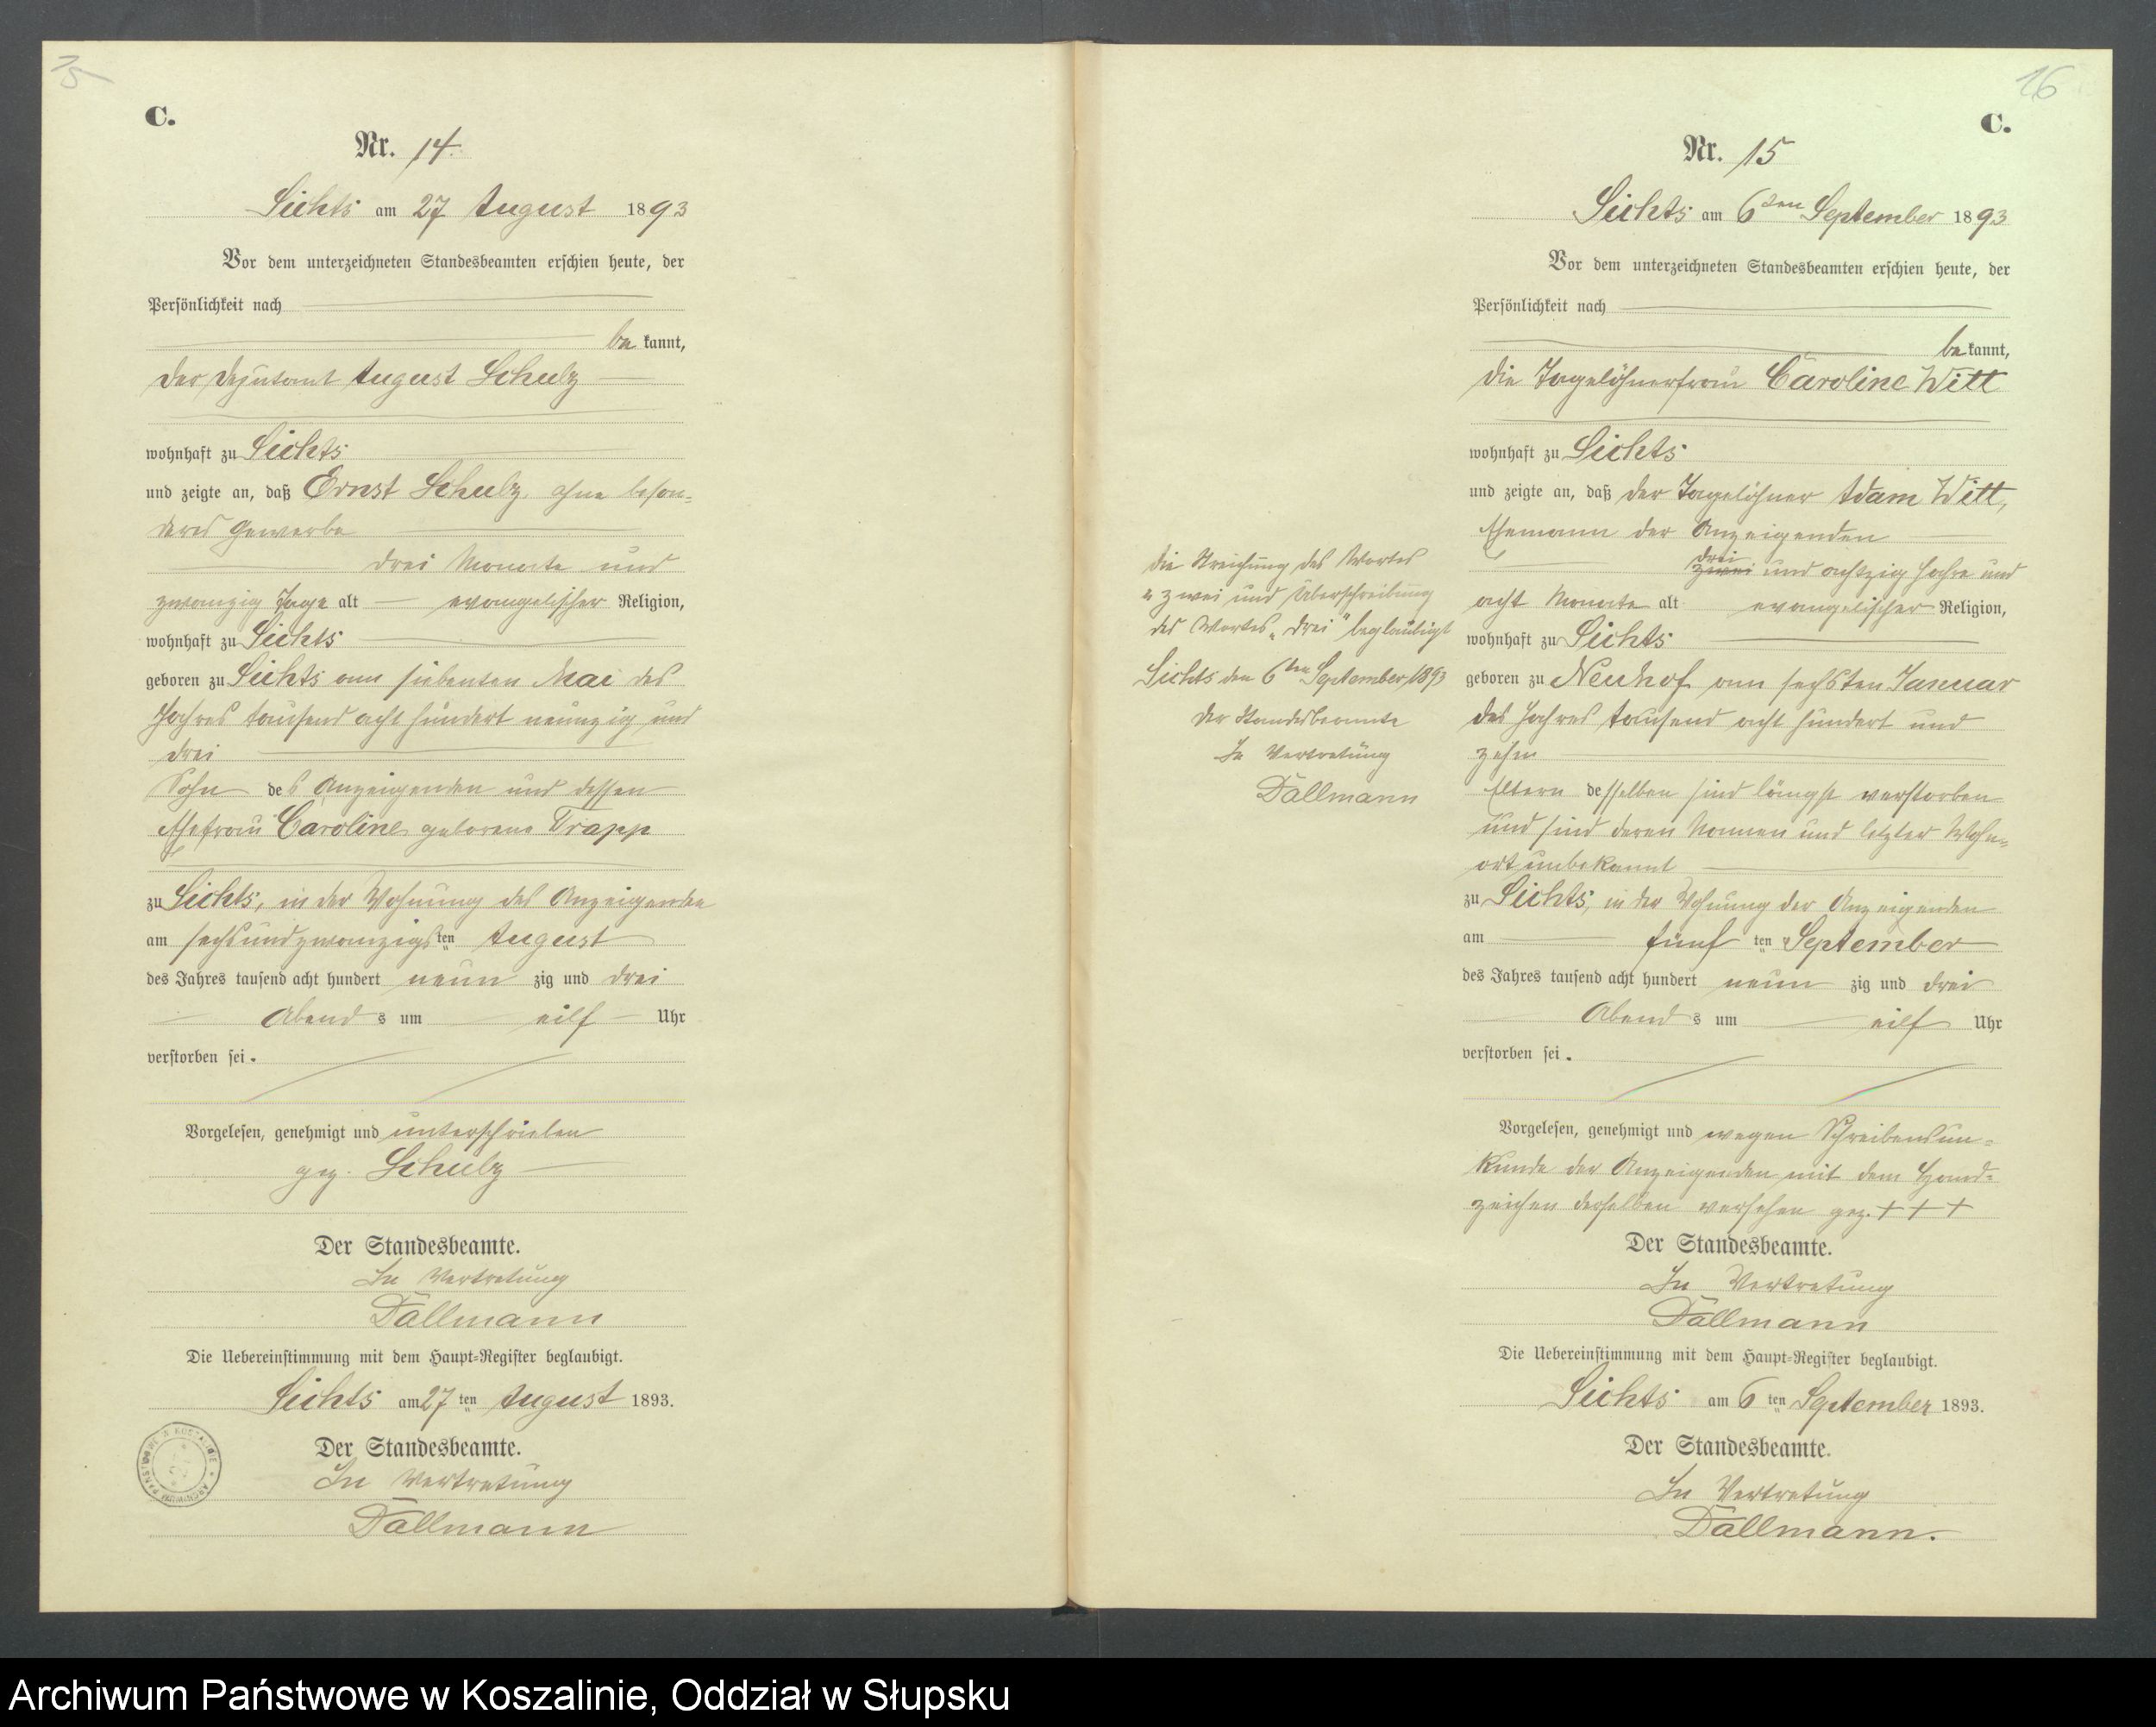 C.
Nr. 14.
Sichts am 27 August 1893
Vor dem unterzeichneten Standesbeamten erschien heute, der
Persönlichkeit nach
be kannt,
der Deputant August Schulz
wohnhaft zu Sichts
und zeigte an, daß Ernst Schulz, ohne beson=
deres Gewerbe
drei Monate und
zwanzig Tage alt evangelischer Religion,
wohnhaft zu Sichts
geboren zu Sichts am siebenten Mai des
Jahres tausend acht hundert neunzig und
drei
Sohn des Anzeigenden und dessen
Ehefrau Caroline geborene Trapp
zu Sichts, in der Wohnung des Anzeigenden
am sechsundzwanzigsten August
des Jahres tausend acht hundert neun zig und drei
Abend s um eilf Uhr
verstorben sei.
Vorgelesen, genehmigt und unterschrieben
gez. Schulz
Der Standesbeamte.
In Vertretung
Dallmann
Die Uebereinstimmung mit dem Haupt-Register beglaubigt.
Sichts am 27 ten August 1893.
Der Standesbeamte.
In Vertretung
Dallmann
ARCHIWUM PAŃSTWOWE W KOSZALINIE
16
C.
Nr. 15
Sichts am 6ten September 1893
Vor dem unterzeichneten Standesbeamten erschien heute, der
Persönlichkeit nach
be kannt,
die Tagelöhnerfrau Caroline Witt
wohnhaft zu Sichts
und zeigte an, daß der Tagelöhner Adam Witt,
Ehemann der Anzeigenden
drei
zwei und achtzig Jahre und
acht Monate alt evangelischer Religion,
wohnhaft zu Sichts
geboren zu Neuhof am sechsten Januar
des Jahres tausend acht hundert und
zehn
Eltern desselben sind längst verstorben
und sind deren Namen und letzter Wohn=
ort unbekannt
zu Sichts, in der Wohnung der Anzeigenden
am fünf ten September
des Jahres tausend acht hundert neun zig und drei
Abend s um eilf Uhr
verstorben sei.
Vorgelesen, genehmigt und wegen Schreibensun=
kunde der Anzeigenden mit dem Hand=
zeichen derselben versehen gez. + + +
Der Standesbeamte.
In Vertretung
Dallmann
Die Uebereinstimmung mit dem Haupt-Register beglaubigt.
Sichts am 6 ten September 1893.
Der Standesbeamte.
In Vertretung
Dallmann.
Die Streichung des Wortes
"zwei und Überschreibung
des Wortes "drei" beglaubigt
Sichts den 6ten September 1893
Der Standesbeamte
In Vertretung
Dallmann
Archiwum Państwowe w Koszalinie, Oddział w Słupsku